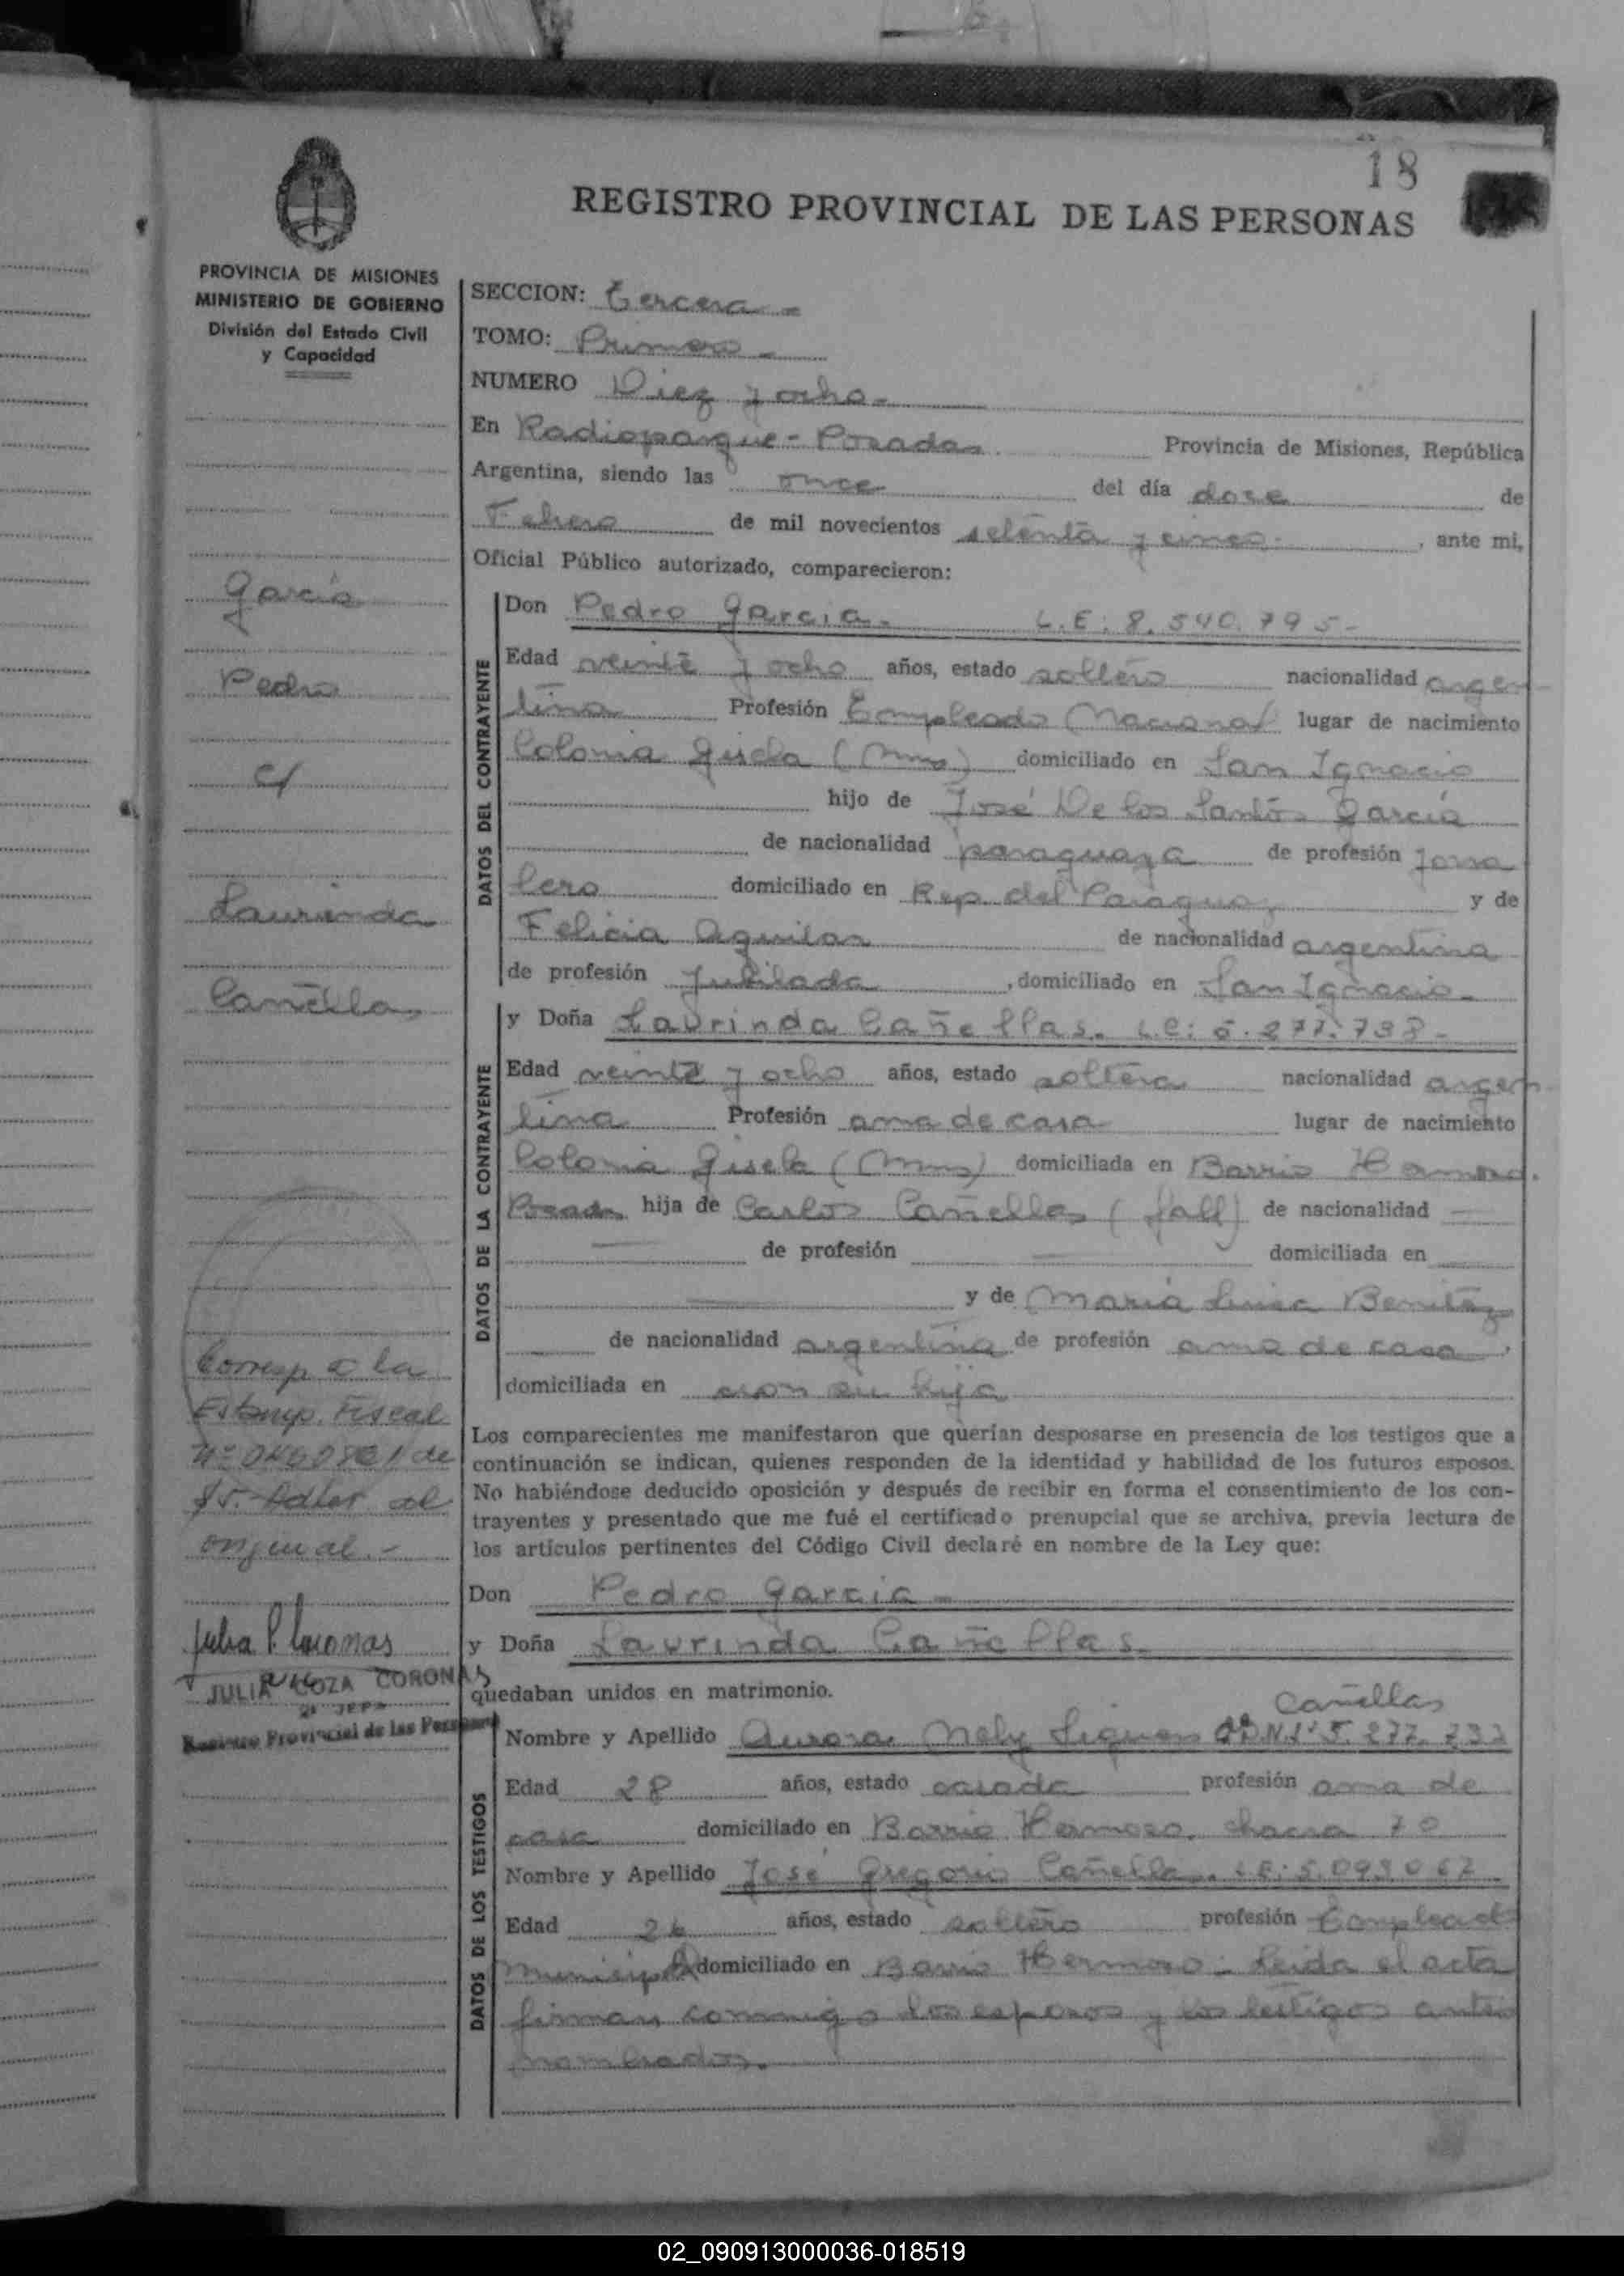 18
REGISTRO PROVINCIAL DE LAS PERSONAS
PROVINCIA DE MISIONES
MINISTERIO DE GOBIERNO
División del Estado Civil
y Capacidad
García
Pedro
c/
Laurinda
Cañellas
Corresp a la
Estamp. Fiscal
de
al
original.-
JULIA COZA CORONAS
Registro Provincial de las Personas
SECCION: Tercera -
TOMO: Primero -
NUMERO Diez y ocho -
En Radioparque - Posadas Provincia de Misiones, República
Argentina, siendo las once del día doce de
Febrero de mil novecientos setenta y cinco - , ante mi,
Oficial Público autorizado, comparecieron:
DATOS DEL CONTRAYENTE
Don Pedro Garcia - L.E: 8.540.795-
Edad veinte y ocho años, estado soltero nacionalidad argen
tina Profesión Empleado Nacional lugar de nacimiento
Colonia Gisela (Mnes) domiciliado en San Ignacio
hijo de José De los Santos García
de nacionalidad paraguaya de profesión jorna
lero domiciliado en Rep. del Paraguay y de
Felicia Aguilar de nacionalidad argentina
de profesión Jubilada , domiciliado en San Ignacio -
DATOS DE LA CONTRAYENTE
y Doña Laurinda Cañellas. L.C: 5.277.738-
Edad veinte y ocho años, estado soltera nacionalidad argen
tina Profesión ama de casa lugar de nacimiento
Colonia Gisela (Mnes) domiciliada en Barrio Hermoso.
Posadas hija de Carlos Cañellas (fall) de nacionalidad —
— de profesión — domiciliada en
— y de María Luisa Benítez
de nacionalidad argentina de profesión ama de casa
domiciliada en con su hija
Los comparecientes me manifestaron que querían desposarse en presencia de los testigos que a
continuación se indican, quienes responden de la identidad y habilidad de los futuros esposos.
No habiéndose deducido oposición y después de recibir en forma el consentimiento de los con-
trayentes y presentado que me fué el certificado prenupcial que se archiva, previa lectura de
los artículos pertinentes del Código Civil declaré en nombre de la Ley que:
Don Pedro Garcia -
y Doña Laurinda Cañellas -
quedaban unidos en matrimonio.
Cañellas
DATOS DE LOS TESTIGOS
Nombre y Apellido Aurora Nely
Edad 28 años, estado casada profesión ama de
casa domiciliado en Barrio Hermoso. chacra 70
Nombre y Apellido José Gregorio Cañellas. L.E: 5.093.067
Edad años, estado soltero profesión Empleado
Municipal domiciliado en Barrio Hermoso - Leida el acta
firman conmigo los esposos y los testigos antes
nombrados.
02_090913000036-018519